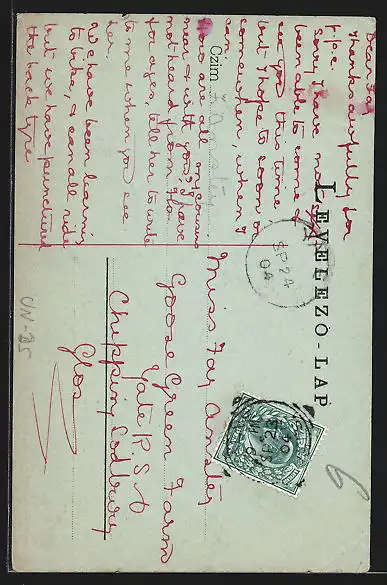 LEVELEZŐ-LAP
Czim
Dear Fay
thanks awfully for
p.p.c.
sorry I have not
been able to come &
see you this time
but hope to soon or
somewhen, when I
can
How are all my cousins
near & with you, I have
not heard from
for ages, tell her to write
to me when you see
her.
We have been learning
to bike, & can all ride
but we have punctured
the back tyre
Miss Fay Ansley
Goose Green Farm
Yate R.S.O
Chipping Sodbury
Glos
SP 24
04
UN-25
6